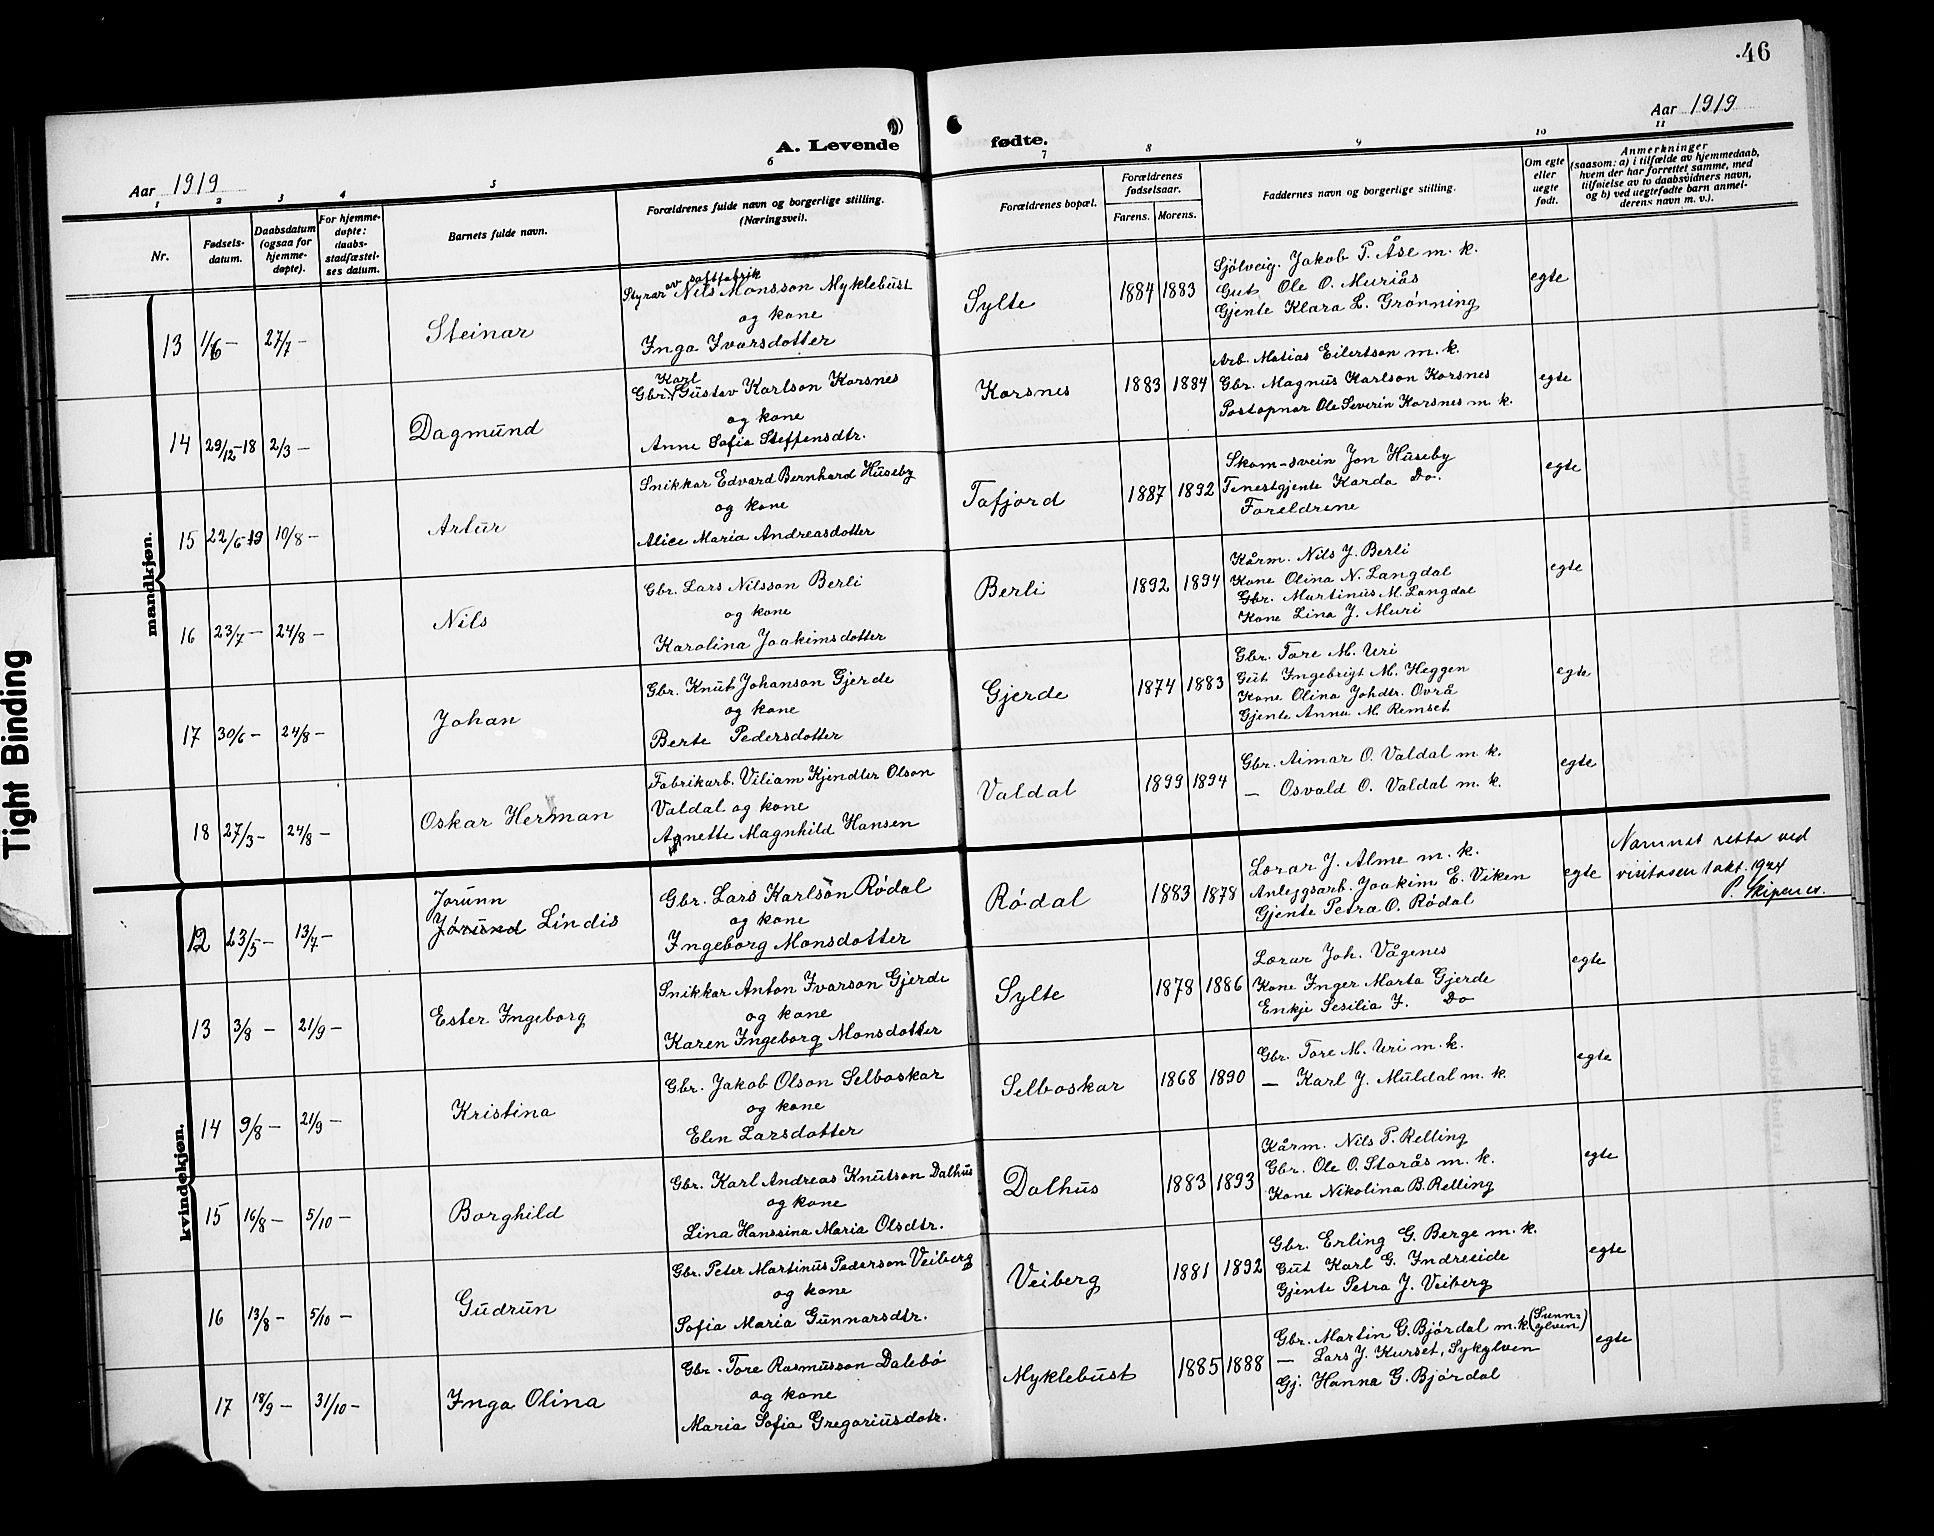 46
Aar 1919
A. Levende fødte.
Aar 1919
1 2 3 4 5 6 7 8 9 10 11
Nr.
Fødselsdatum.
Daabsdatum (ogsaa for hjemmedøpte).
For hjemmedøpte: daabsstadfæstelses datum.
Barnets fulde navn.
Forældrenes fulde navn og borgerlige stilling. (Næringsvei).
Forældrenes bopæl.
Forældrenes fødselsaar.
Farens. Morens.
Faddernes navn og borgerlige stilling.
Om egte eller uegte født.
Anmerkninger (saasom: a) i tilfælde av hjemmedaab, hvem der har forrettet samme, med tilføielse av to daabsvidners navn, og b) ved uegtefødte barn anmelderens navn m. v.).
mandkjøn.
13 1/6 – 27/7 – Steinar
Styrar av saftfabrik Nils Monsson Myklebust
og kone
Inga Ivarsdotter
Sylte 1884 1883
Sjølveig. Jakob P. Åse m. k.
Gut Ole O. Muriås
Gjente Klara L. Grønning
egte
14 29/12-18 2/3 – Dagmund
Gbr. Karl Gustav Karlson Korsnes
og kone
Anne Sofia Steffensdtr.
Korsnes 1883 1884
Arb. Matias Eilertson m. k.
Gbr. Magnus Karlson Korsnes
Postopnar Ole Severin Korsnes m. k.
egte
15 22/6-19 10/8 – Artur
Snikkar Edvard Bernhard Huseby
og kone
Alice Maria Andreasdotter
Tafjord 1887 1892
Skom-svein Jon Huseby
Tenestgjente Karda Do.
Foreldrene
egte
16 23/7 – 24/8 – Nils
Gbr. Lars Nilsson Berli
og kone
Karolina Joakimsdotter
Berli 1892 1894
Kårm. Nils J. Berli
Kone Olina N. Langdal
Gbr. Martinus M. Langdal
Kone Lina J. Muri
egte
17 30/6 – 24/8 – Johan
Gbr. Knut Johanson Gjerde
og kone
Berte Pedersdotter
Gjerde 1874 1883
Gbr. Tore M. Uri
Gut Ingebrigt M. Heggen
Kone Olina Johdtr. Ovrå
Gjente Anna M. Remset
egte
18 27/3 – 24/8 – Oskar Herman
Fabrikarb. Viliam Kjendler Olson
Valdal og kone
Agnette Magnhild Hansen
Valdal 1899 1894
Gbr. Aimar O. Valdal m. k.
— Osvald O. Valdal m. k.
egte
kvindekjøn.
12 23/5 – 13/7 – Jorunn
Jørund Lindis
Gbr. Lars Karlson Rødal
og kone
Ingeborg Monsdotter
Rødal 1883 1878
Lærar J. Alme m. k.
Anleggsarb. Joakim E. Viken
Gjente Petra O. Rødal
egte
Namnet retta ved
visitasen 1 okt. 1924
13 3/8 – 21/9 – Ester Ingeborg
Snikkar Anton Ivarson Gjerde
og kone
Karen Ingeborg Monsdotter
Sylte 1878 1886
Lærar Joh. Vågenes
Kone Inger Marta Gjerde
Enkje Sesilia I. Do
egte
14 9/8 – 21/9 – Kristina
Gbr. Jakob Olson Selboskar
og kone
Elen Larsdotter
Selboskar 1868 1890
Gbr. Tore M. Uri m. k.
— Karl J. Muldal m. k.
egte
15 16/8 – 5/10 – Borghild
Gbr. Karl Andreas Knutson Dalhus
og kone
Lina Hanssina Maria Olsdtr.
Dalhus 1883 1893
Kårm. Nils P. Relling
Gbr. Ole O. Storås m. k.
Kone Nikolina B. Relling
egte
16 13/8 – 5/10 – Gudrun
Gbr. Peter Martinus Pederson Veiberg
og kone
Sofia Maria Gunnarsdtr.
Veiberg 1881 1892
Gbr. Erling G. Berge m. k.
Gut Karl G. Indreeide
Gjente Petra J. Veiberg
egte
17 18/9 – 31/10 – Inga Olina
Gbr. Tore Rasmusson Dalebø
og kone
Maria Sofia Gregoriusdotr.
Myklebust 1885 1888
Gbr. Martin G. Bjørdal m. k. (Sunnylven)
— Lars J. Kurset, Sykylven
Gj. Hanna G. Bjørdal
egte
Tight Binding